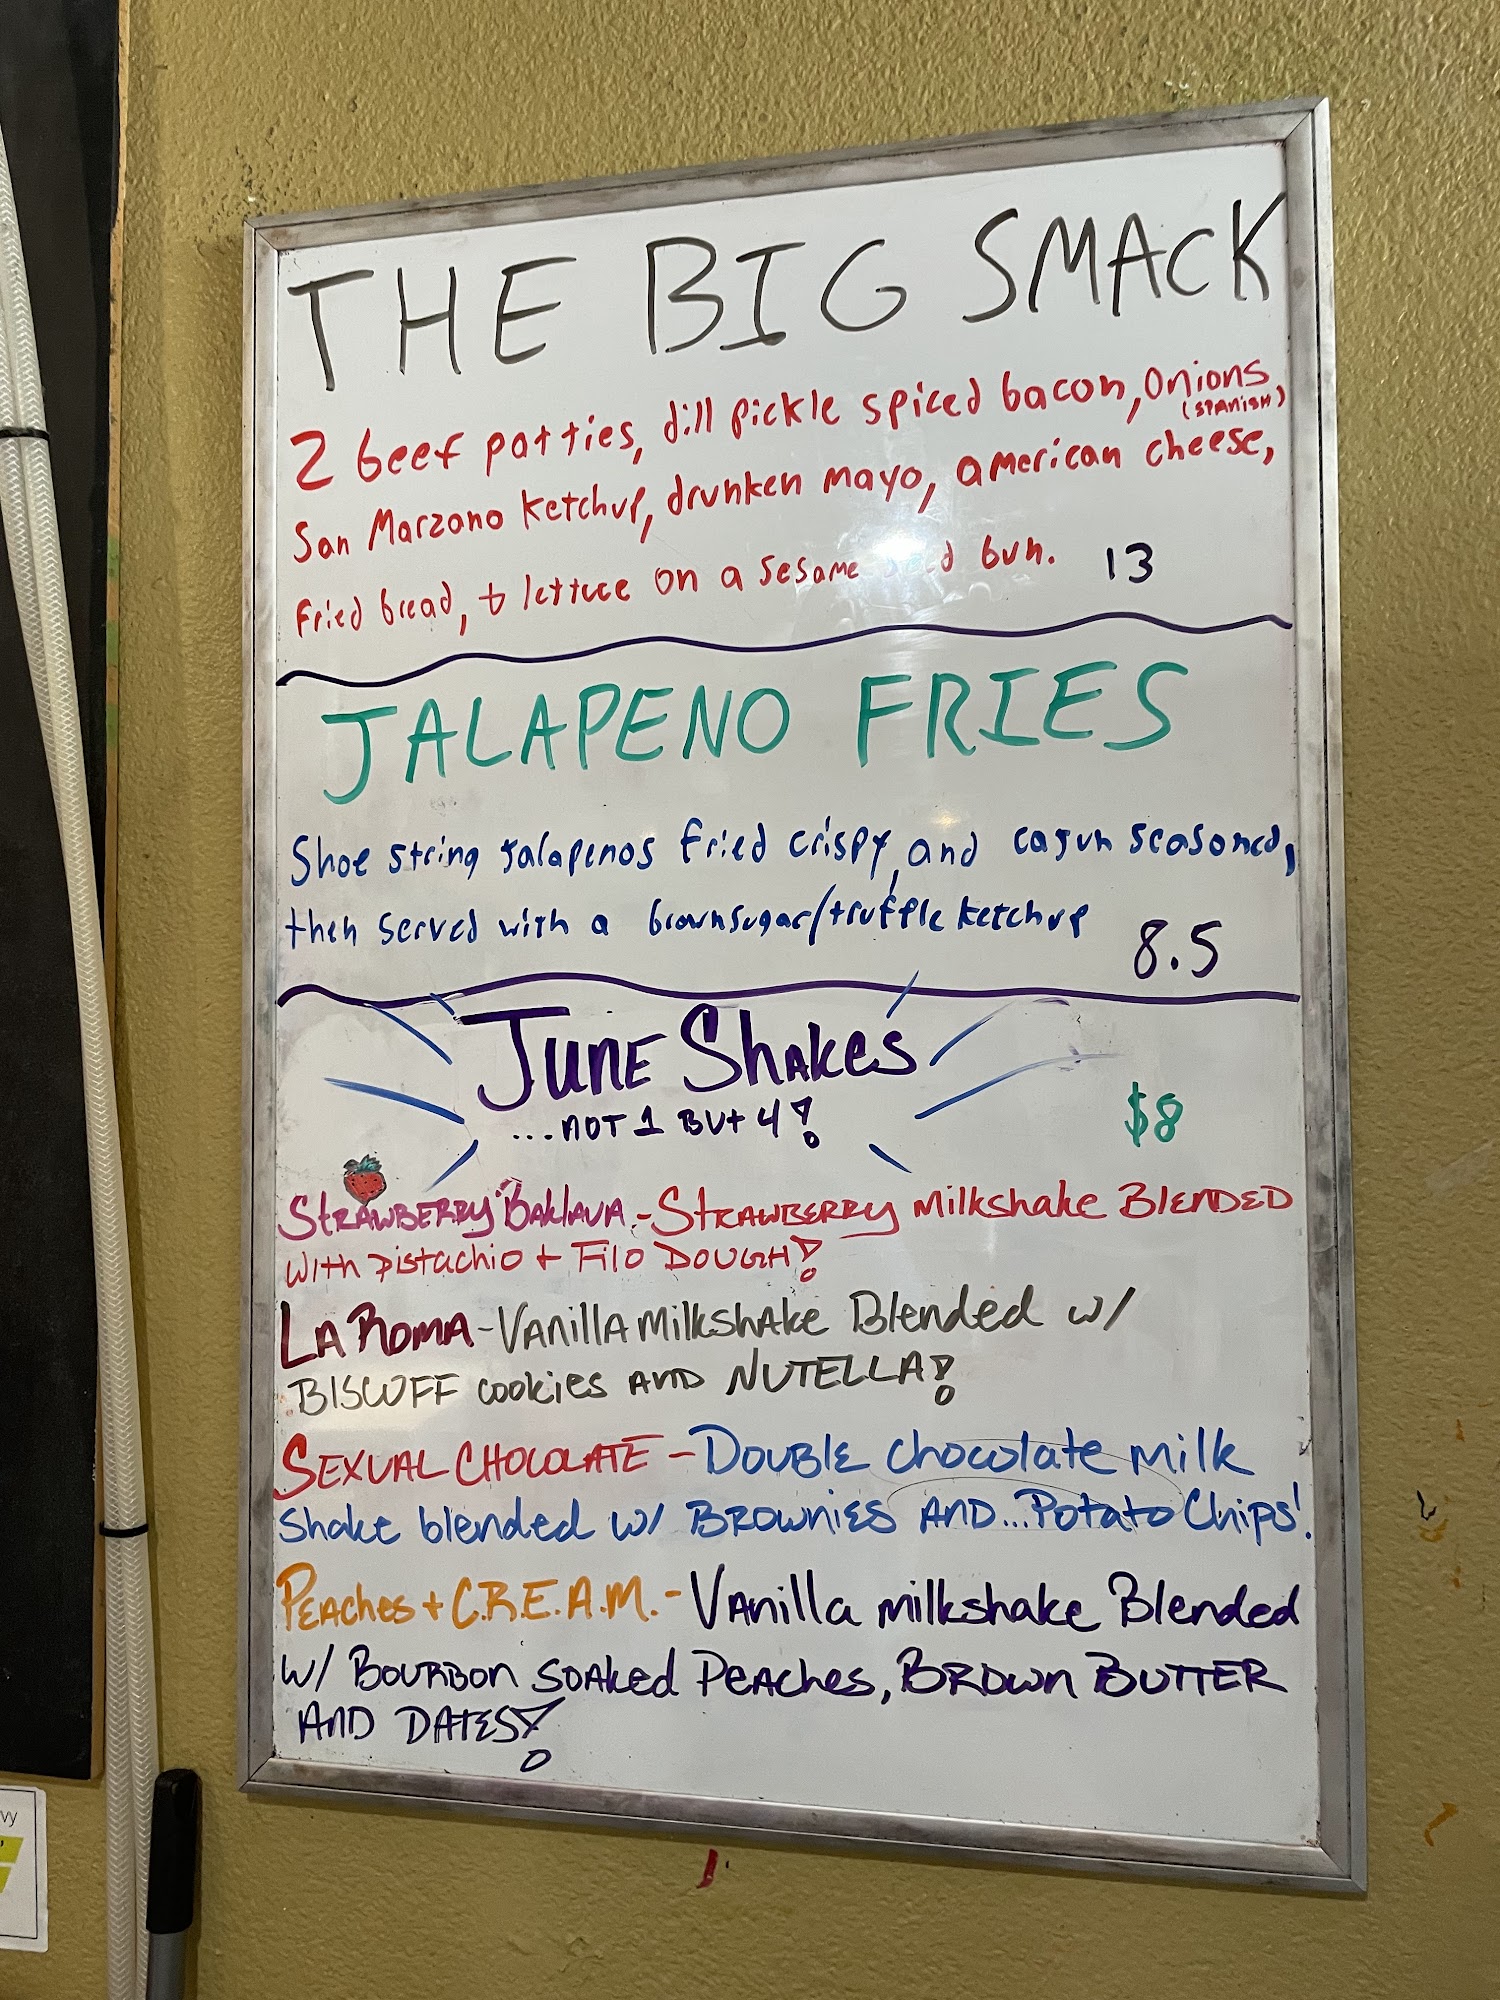 THE BIG SMACK
2 beef patties, dill pickle spiced bacon, onions,
(SPANISH)
San Marzano ketchup, drunken mayo, american cheese,
fried bread, + lettuce on a sesame bun. 13
JALAPENO FRIES
Shoe string jalapenos fried crispy, and cajun seasoned,
then served with a brownsugar/truffle ketchup 8.5
JUNE SHAKES
...NOT 1 BUT 4!
$8
STRAWBERRY "BAKLAVA - STRAWBERRY Milkshake BLENDED
WITH Pistachio + FILO DOUGH!
LA ROMA - VANILLA Milkshake Blended w/
BISCOFF cookies AND NUTELLA!
SEXUAL CHOCOLATE - DOUBLE chocolate milk
shake blended w/ BROWNIES AND... Potato Chips!
PEACHES + C.R.E.A.M. - Vanilla milkshake Blended
w/ BOURBON SOAKED PEACHES, BROWN BUTTER
AND DATES!
vy